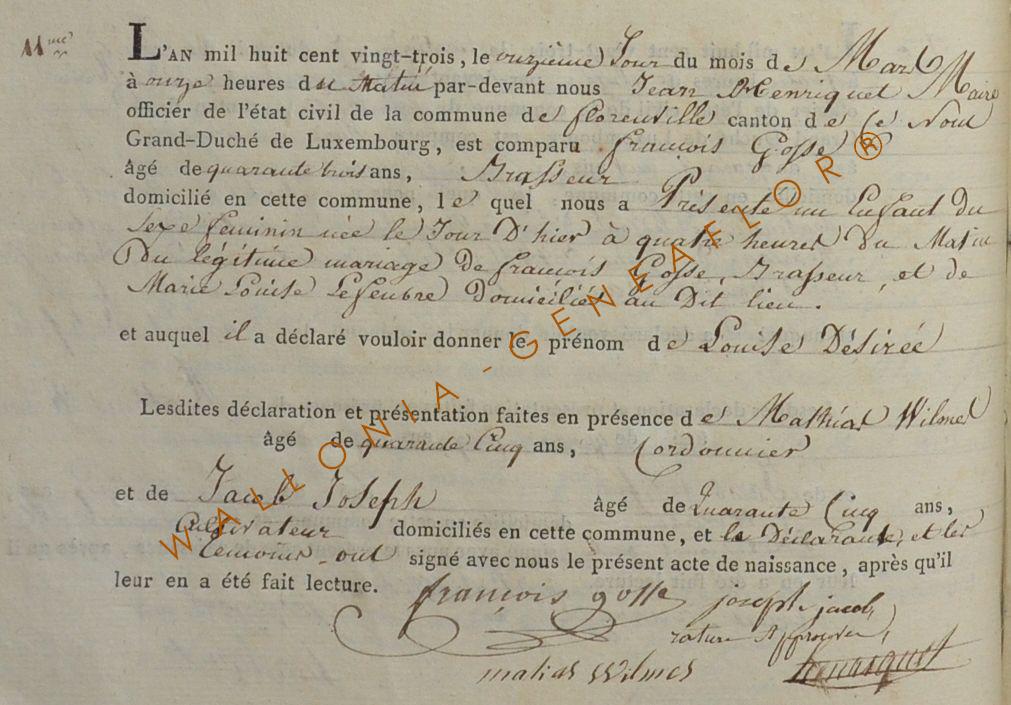 11me
L'AN mil huit cent vingt-trois, le onzième Jour du mois de Mars
à onze heures du Matin par-devant nous Jean Henriquet Maire
officier de l'état civil de la commune de florenville canton de Ce Nom
Grand-Duché de Luxembourg, est comparu francois Gosse
âgé de quarante trois ans, Brasseur
domicilié en cette commune, le quel nous a Présenté un Enfant du
sexe feminin née le Jour D'hier à quatre heures Du Matin
Du légitime mariage De francois Gosse, Brasseur, et de
Marie Louise Lefeubre Domiciliés au Dit lieu.
et auquel il a déclaré vouloir donner le prénom de Louise Désirée
Lesdites déclaration et présentation faites en présence de Mathias Wilmes
âgé de quarante Cinq ans, Cordonnier
et de Jacob Joseph âgé de Quarante Cinq ans,
Cultivateur domiciliés en cette commune, et le Déclarant, et les
temoins ont signé avec nous le présent acte de naissance, après qu'il
leur en a été fait lecture.
françois gosse joseph jacob
rature Approuvée
matias Wilmes henriquet
WALLONIA-GENEAFLOR®